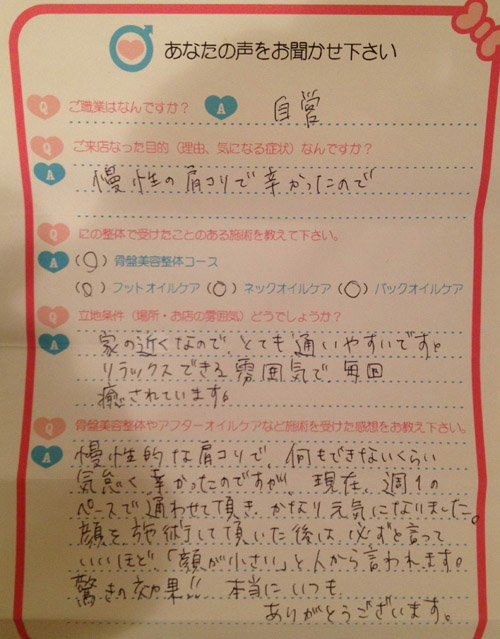 あなたの声をお聞かせ下さい
Q ご職業はなんですか? A 自営
Q ご来店なった目的(理由、気になる症状)なんですか?
A 慢性の肩コリで辛かったので
Q にの整体で受けたことのある施術を教えて下さい。
A (○) 骨盤美容整体コース
(○) フットオイルケア (○) ネックオイルケア (○) バックオイルケア
Q 立地条件(場所・お店の雰囲気)どうでしょうか?
A 家の近くなので、とても通いやすいです。
リラックスできる雰囲気で、毎回
癒されています。
Q 骨盤美容整体やアフターオイルケアなど施術を受けた感想をお教え下さい。
A 慢性的な肩コリで、何もできないくらい
気怠く、辛かったのですが、現在、週1の
ペースで通わせて頂き、かなり元気になりました。
顔を施術して頂いた後は、必ずと言って
いいほど「顔が小さい」と人から言われます。
驚きの効果!! 本当にいつも
ありがとうございます。